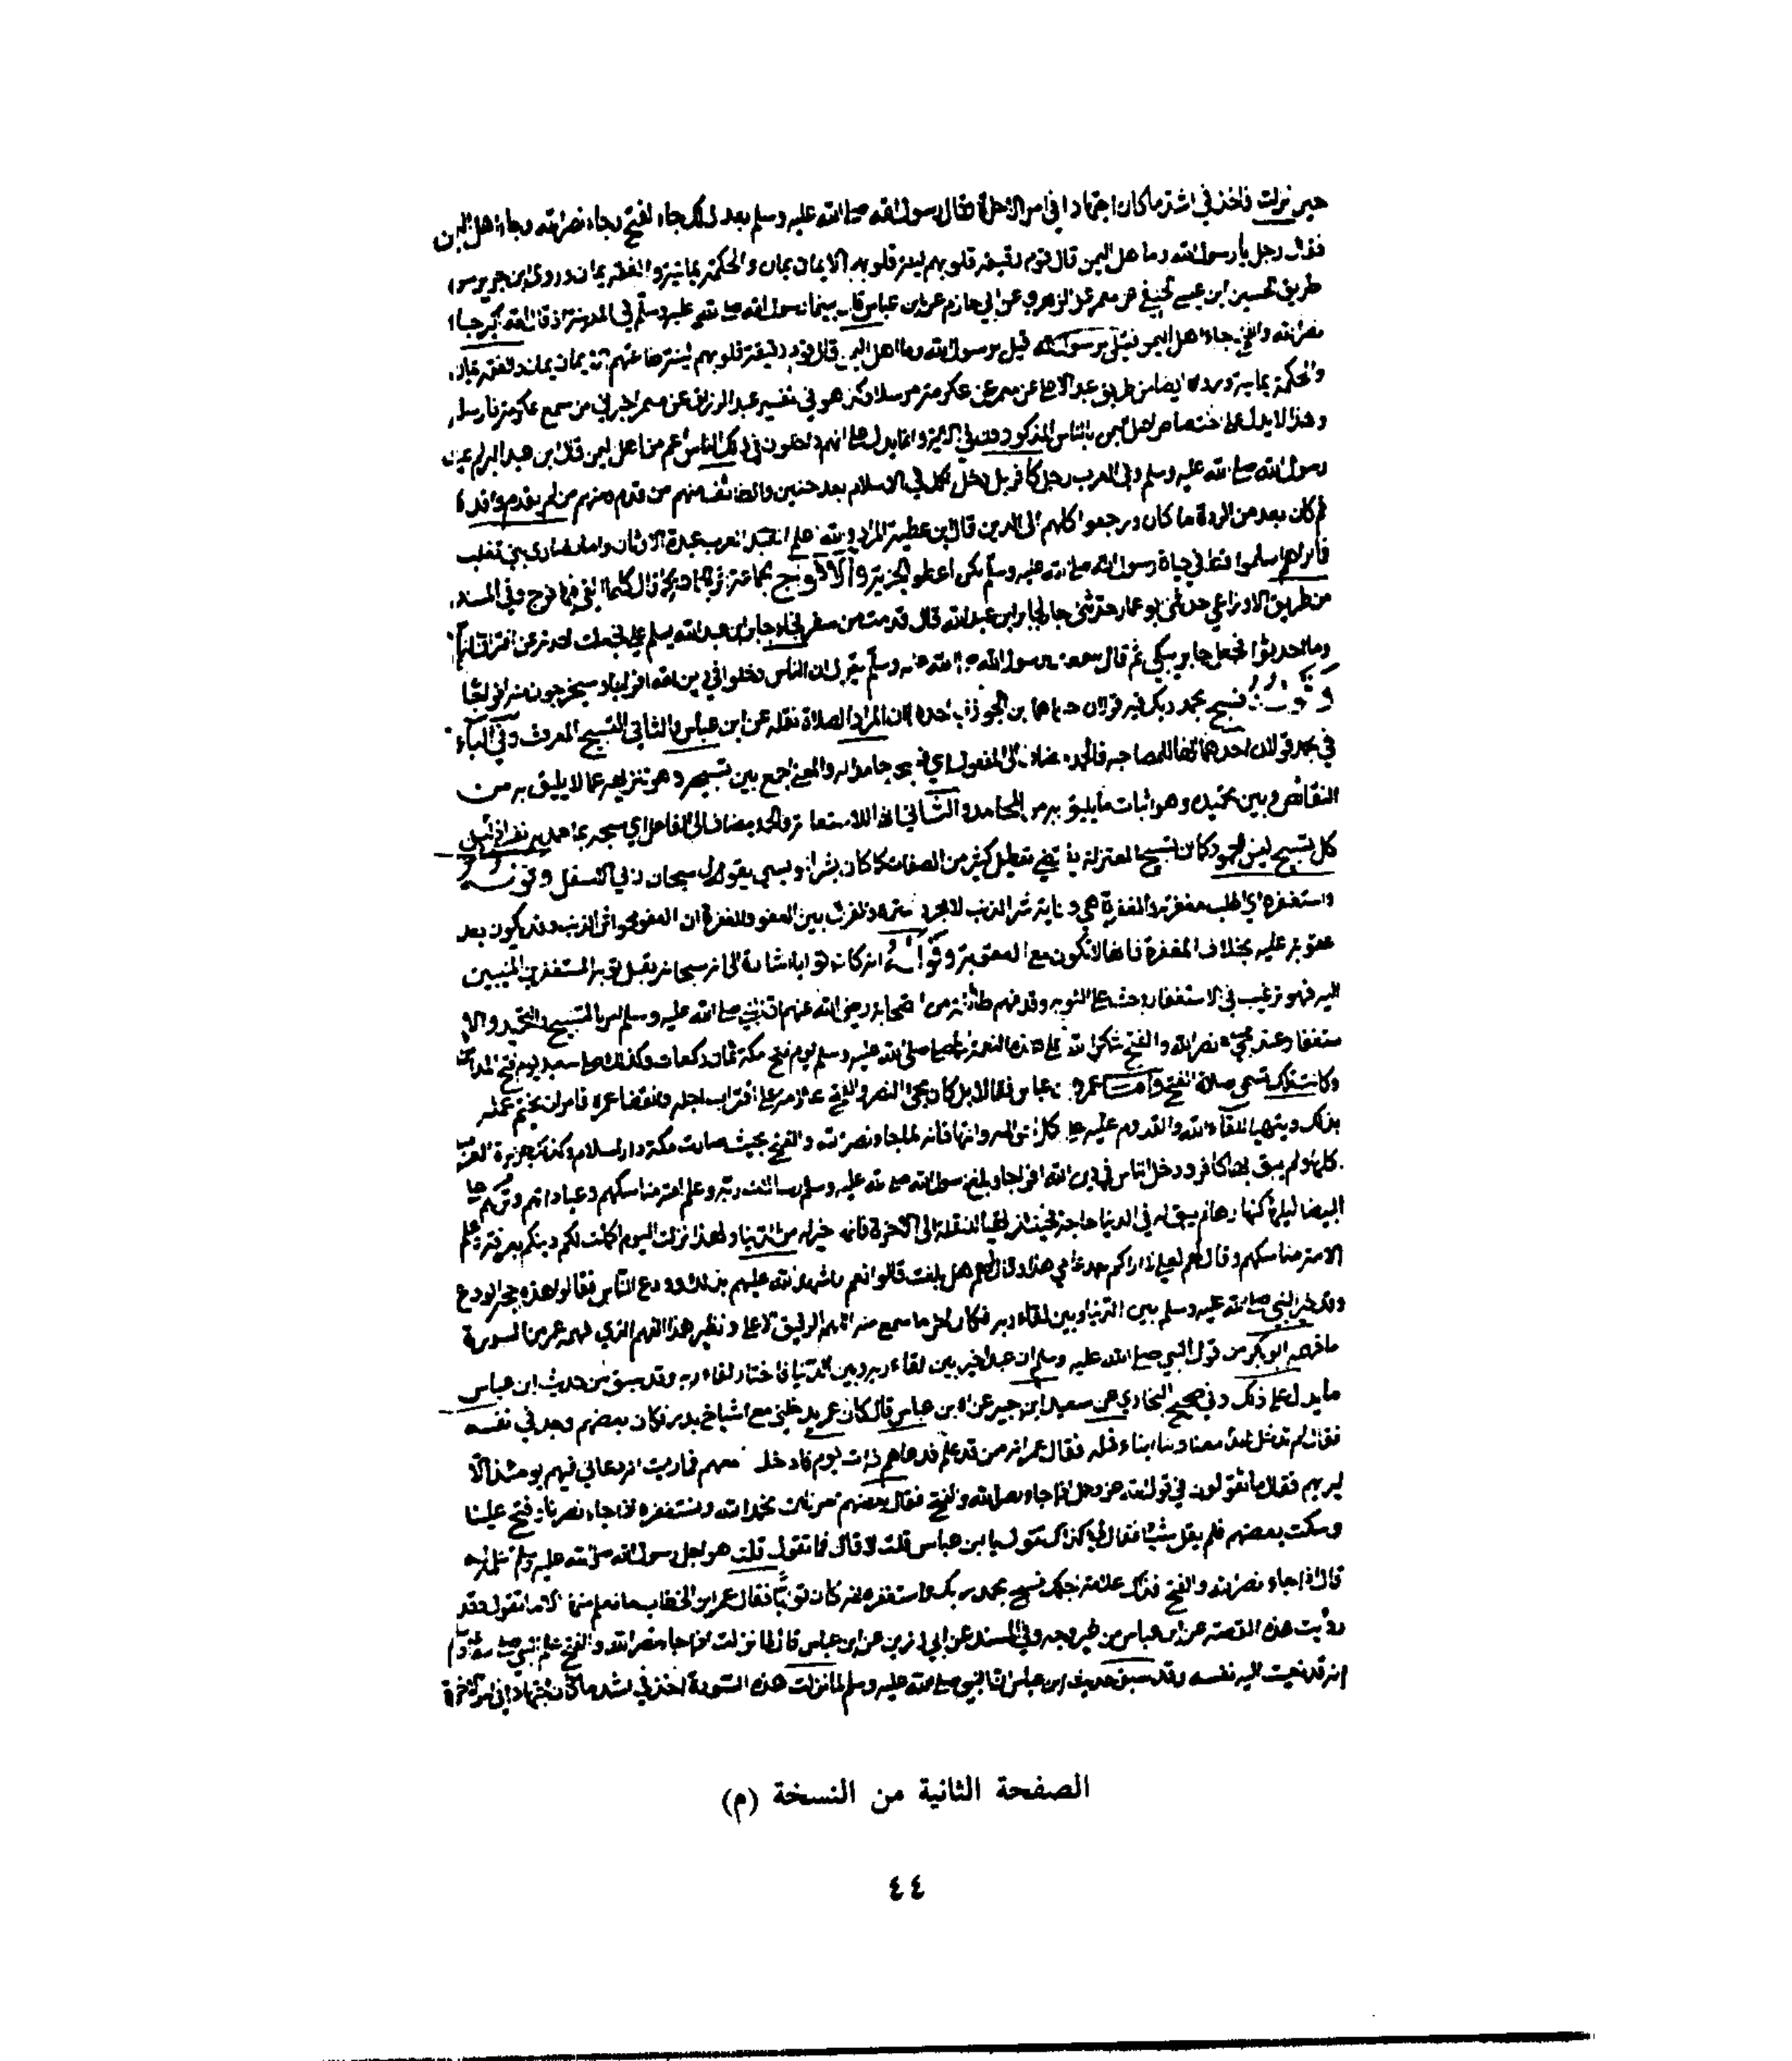 حين نزلت فاخذ في اشد ما كان اجتهادا في امر الآخرة فقال رسول الله صلى الله عليه وسلم بعد ذلك جاء الفتح وجاء نصر الله وجاء اهل اليمن
فقال رجل يا رسول الله وما اهل اليمن قال قوم رقيقة قلوبهم لينة قلوبهم الايمان يمان والحكمة يمانية والفقه يمان وروى ابن جرير من
طريق الحسين ابن عيسى الحنفي عن معمر عن الزهري عن ابي حازم عن ابن عباس قال بينما رسول الله صلى الله عليه وسلم في المدينة اذ قال الله اكبر جاء
نصر الله والفتح جاء اهل اليمن قيل يا رسول الله وما اهل اليمن قال قوم رقيقة قلوبهم لينة طباعهم الايمان يمان والفقه يمان
والحكمة يمانية ورواه ايضا من طريق عبد الاعلى عن معمر عن عكرمة مرسلا وكذا هو في تفسير عبد الرزاق عن معمر اخبرني من سمع عكرمة فارسله
وهذا لا يدل على اختصاص اهل اليمن بالناس المذكورين في الآية وانما يدل على انهم داخلون في ذلك الناس اعم من اهل اليمن قال ابن عبد البر لم يمت
رسول الله صلى الله عليه وسلم وفي العرب رجل كافر بل دخل الكل في الاسلام بعد حنين والطائف منهم من قدم ومنهم من قدم وافده
ثم كان بعد من الردة ما كان ورجعوا كلهم الى الدين قال ابن عطية المراد والله اعلم العرب عبدة الاوثان واما نصارى بني تغلب
فما اراهم اسلموا قط في حياة رسول الله صلى الله عليه وسلم لكن اعطوا الجزية والافواج الجماعة اثر الجماعة وفي المسند
من طريق الاوزاعي حدثني ابو عمار حدثني جار لجابر ابن عبد الله قال قدمت من سفر فجاء جابر ابن عبد الله يسلم علي فجعلت احدثه عن افتراق الناس
وما احدثوا فجعل جابر يبكي ثم قال سمعت رسول الله صلى الله عليه وسلم يقول ان الناس دخلوا في دين الله افواجا وسيخرجون منه افواجا
وقوله فسبح بحمد ربك فيه قولان حكاهما ابن الجوزي احدهما ان المراد الصلاة نقله عن ابن عباس والثاني التسبيح المعروف وفي الباء
في بحمد قولان احدهما انها للمصاحبة فالحمد مضاف الى المفعول اي فسبحه حامدا له والمعنى اجمع بين تسبيحه وهو تنزيهه عما لا يليق به من
النقائص وبين تحميده وهو اثبات ما يليق به من المحامد والثاني انها للاستعانة والحمد مضاف الى الفاعل اي سبحه بما حمد به نفسه اذ ليس
كل تسبيح بمحمود كما ان تسبيح المعتزلة يقتضي تعطيل كثير من الصفات كما كان بشر المريسي يقول سبحان ربي الاسفل وقوله
واستغفره اي اطلب مغفرته والمغفرة هي وقاية شر الذنب لا مجرد ستره والفرق بين العفو والمغفرة ان العفو محو اثر الذنب وقد يكون بعد
عقوبة عليه بخلاف المغفرة فانها لا تكون مع العقوبة وقوله انه كان توابا اشارة الى انه سبحانه يقبل توبة المستغفرين المنيبين
اليه فهو ترغيب في الاستغفار وحث على التوبة وقد فهم طائفة من الصحابة رضي الله عنهم ان النبي صلى الله عليه وسلم امر بالتسبيح والتحميد والا
ستغفار عند مجيء نصر الله والفتح شكرا لله على هذه النعمة كما صلى النبي صلى الله عليه وسلم يوم فتح مكة ثمان ركعات وكذلك صلى سعد يوم فتح المدائن
وكانت تلك تسمى صلاة الفتح واما عمر وابن عباس فقالا بل كان مجيء النصر والفتح علامة على اقتراب اجله وانقضاء عمره فامر ان يختم عمله
بذلك ويتهيا للقاء الله والقدوم عليه على اكمل احواله واتمها فانه لما جاء نصر الله والفتح بحيث صارت مكة دار اسلام وكذلك جزيرة العرب
كلها ولم يبق بها كافر ودخل الناس في دين الله افواجا وبلغ رسول الله صلى الله عليه وسلم رسالات ربه وعلم امته مناسكهم وعباداتهم وتركهم على
البيضاء ليلها كنهارها لم يبق له في الدنيا حاجة فحينئذ تهيا للنقلة الى الآخرة فانها خير له من الدنيا ولهذا نزلت اليوم اكملت لكم دينكم بعرفة وعلم
الامة مناسكهم وقال لهم لعلي لا اراكم بعد عامي هذا وقال لهم هل بلغت قالوا نعم فاشهد الله عليهم بذلك وودع الناس فقالوا هذه حجة الوداع
وقد خير النبي صلى الله عليه وسلم بين الدنيا وبين لقاء ربه فكان اخر ما سمع منه اللهم الرفيق الاعلى ونظير هذا الفهم الذي فهمه عمر من السورة
ما فهمه ابو بكر من قول النبي صلى الله عليه وسلم ان عبدا خير بين لقاء ربه وبين الدنيا فاختار لقاء ربه وقد سبق من حديث ابن عباس
ما يدل على ذلك وفي صحيح البخاري عن سعيد ابن جبير عن ابن عباس قال كان عمر يدخلني مع اشياخ بدر فكان بعضهم وجد في نفسه
فقال لم تدخل هذا معنا ولنا ابناء مثله فقال عمر انه من قد علمتم فدعاهم ذات يوم فادخله معهم فما رايت انه دعاني فيهم يومئذ الا
ليريهم فقال ما تقولون في قول الله عز وجل اذا جاء نصر الله والفتح فقال بعضهم امرنا ان نحمد الله ونستغفره اذا جاء نصرنا وفتح علينا
وسكت بعضهم فلم يقل شيئا فقال لي اكذاك تقول يا ابن عباس قلت لا قال فما تقول قلت هو اجل رسول الله صلى الله عليه وسلم اعلمه له
قال اذا جاء نصر الله والفتح فذلك علامة اجلك فسبح بحمد ربك واستغفره انه كان توابا فقال عمر ابن الخطاب ما نعلم منها الا ما تقول وقد
رويت هذه القصة عن ابن عباس من غير وجه وفي المسند عن ابي رزين عن ابن عباس قال لما نزلت اذا جاء نصر الله والفتح علم النبي صلى الله عليه وسلم
انه قد نعيت اليه نفسه وقد سبق حديث ابن عباس ان النبي صلى الله عليه وسلم لما نزلت هذه السورة اخذ في اشد ما كان اجتهادا في امر الآخرة
الصفحة الثانية من النسخة (م)
٤٤